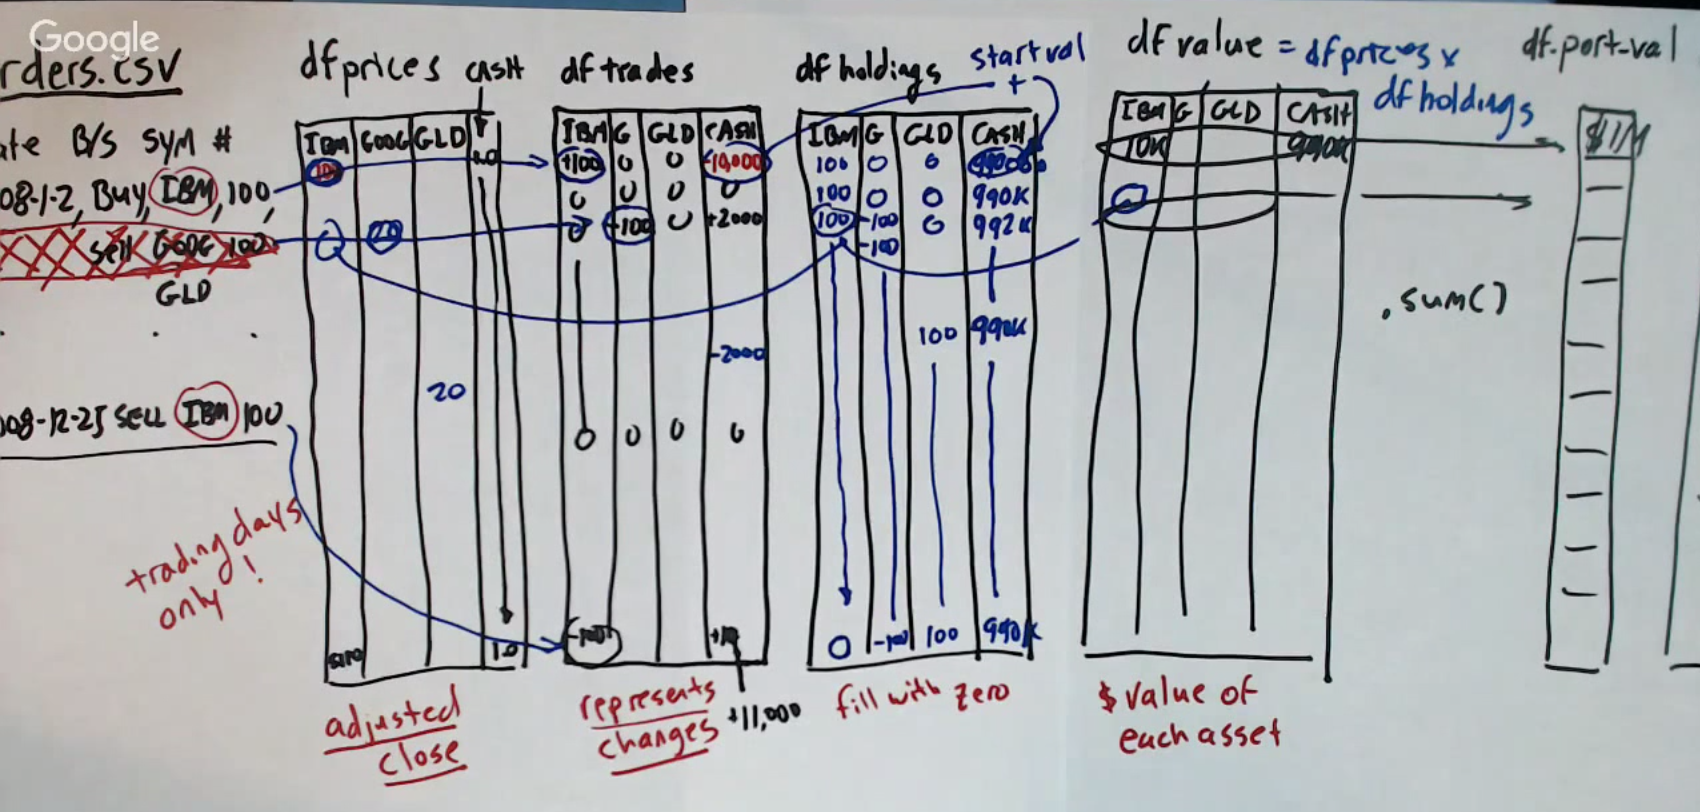 Google
rders.csv
ate B/S SYM #
08-1-2, Buy, IBM, 100,
Sell GOOG 100
GLD
. . .
008-12-25 SELL IBM 100
trading days
only!
df prices CASH
IBM GOOG GLD
1.0
20
1.0
adjusted
close
df trades
IBM G GLD CASH
+100 0 0 -10,000
0 0 0 0
0 -100 0 +2000
-2000
0 0 0 0
-100
+11,000
represents
changes
df holdings
start val
+
IBM G GLD CASH
100 0 0
100 0 0 990K
100 -100 0 992K
-100
100 990K
0 -100 100 990K
fill with zero
df value = df prices x
df holdings
IBM G GLD CASH
10K 990K
$ value of
each asset
df.port-val
$1M
.sum()